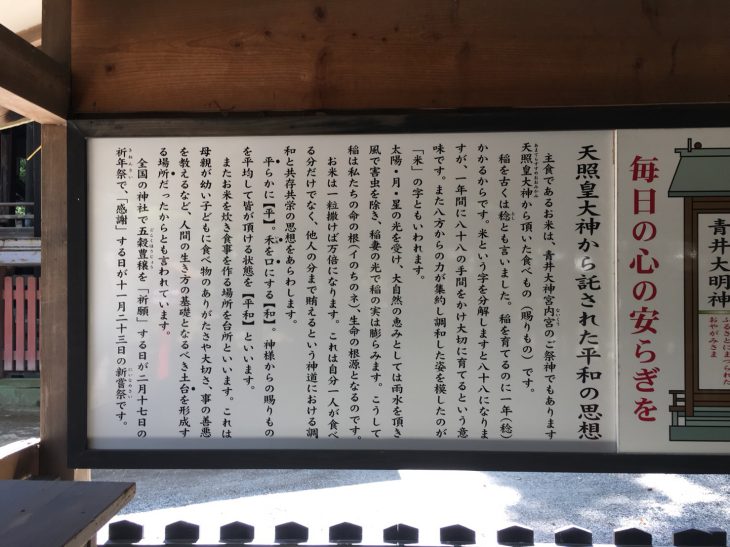 青井大明神
ふるさとにまつられた
おやがみさま
毎日の心の安らぎを
天照皇大神から託された平和の思想
主食であるお米は、青井大神宮内宮のご祭神でもあります
天照皇大神から頂いた食べもの（賜りもの）です。
あまてらすすめおおみかみ
稲を古くは稔とも言いました。稲を育てるのに一年（稔）
かかるからです。米という字を分解しますと八十八になりま
すが、一年間に八十八の手間をかけ大切に育てるという意
味です。また八方からの力が集約し調和した姿を模したのが
「米」の字ともいわれます。
太陽・月・星の光を受け、大自然の恵みとしては雨水を頂き
風で害虫を除き、稲妻の光で稲の実は膨らみます。こうして
稲は私たちの命の根（イのちのネ）、生命の根源となるのです。
お米は一粒撒けば万倍になります。これは自分一人が食べ
る分だけでなく、他人の分まで賄えるという神道における調
和と共存共栄の思想をあらわします。
平らかに【平】。禾を口にする【和】。神様からの賜りもの
を平均して皆が頂ける状態を【平和】といいます。
またお米を炊き食事を作る場所を台所といいます。これは
母親が幼い子どもに食べ物のありがたさや大切さ、事の善悪
を教えるなど、人間の生き方の基礎となるべき土台を形成す
る場所だったからとも言われています。
全国の神社で五穀豊穣を「祈願」する日が二月十七日の
ごこくほうじょう
祈年祭で、「感謝」する日が十一月二十三日の新嘗祭です。
きねんさい
にいなめさい